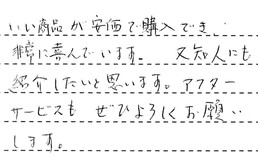 いい商品が安価で購入でき
非常に喜んでいます。 又知人にも
紹介したいと思います。アフター
サービスも ぜひよろしくお願い
します。